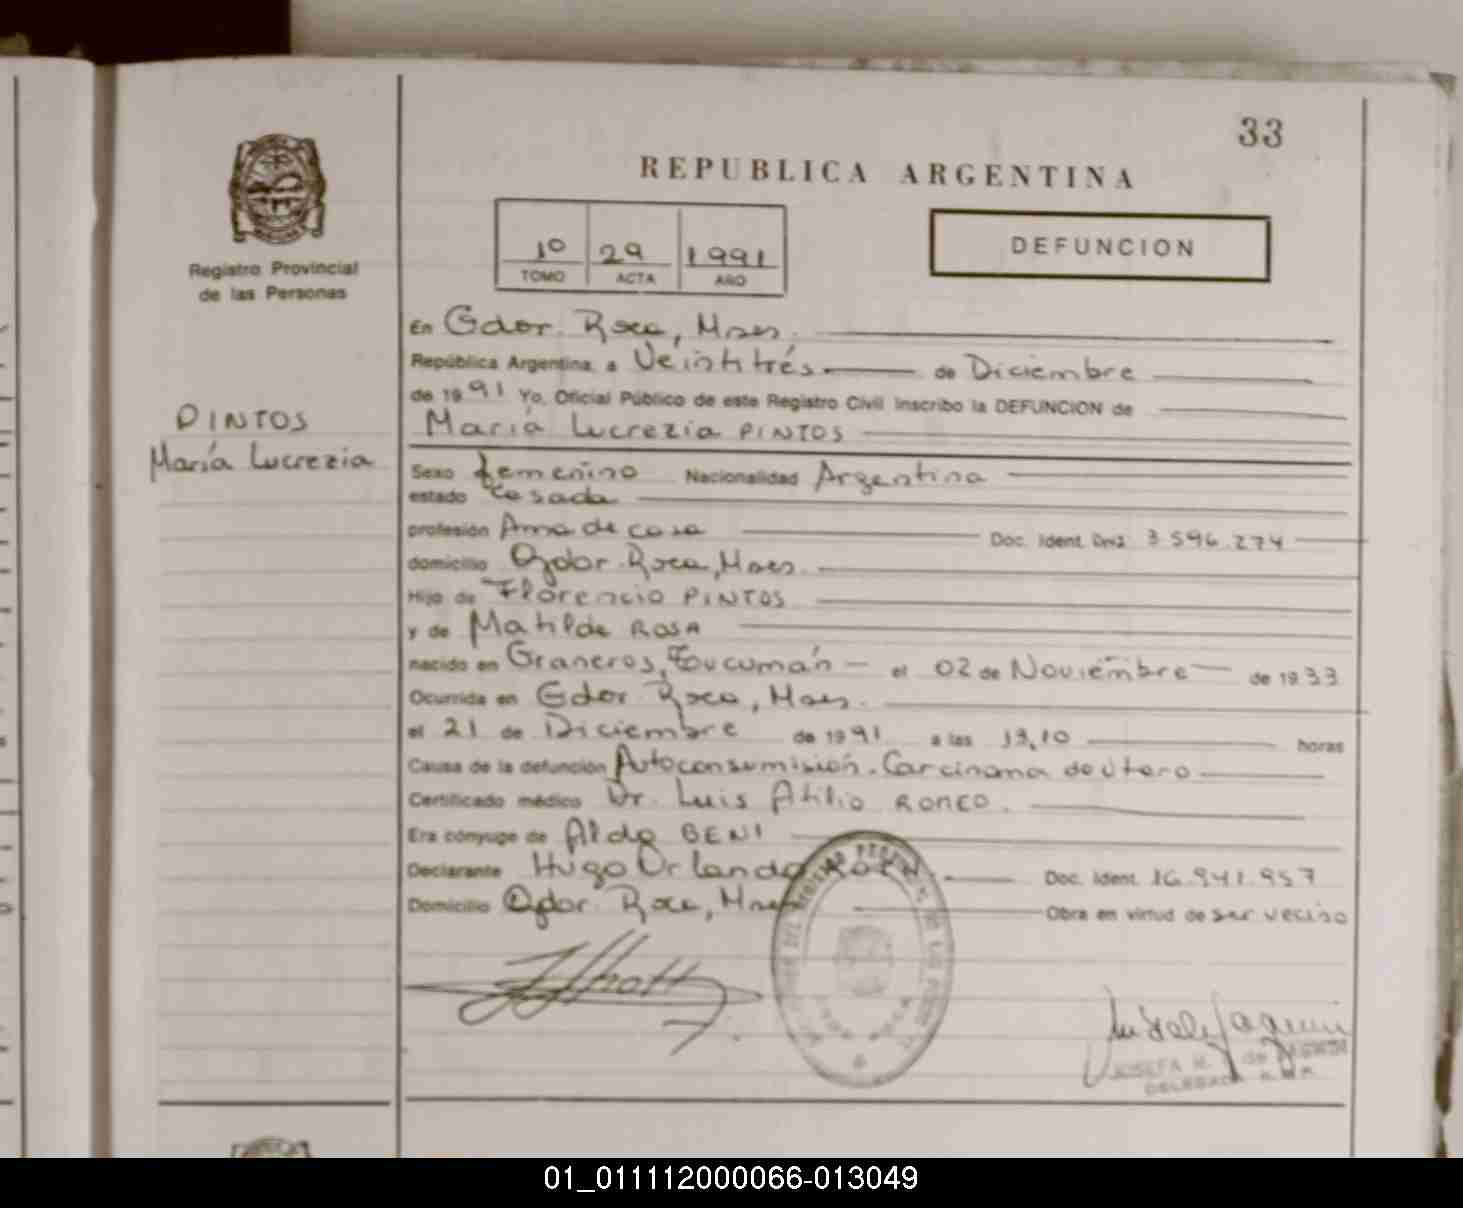 33
REPUBLICA ARGENTINA
10 29 1991
TOMO ACTA AÑO
DEFUNCION
Registro Provincial
de las Personas
PINTOS
María Lucrezia
En Gdor. Roca, Mnes.
República Argentina, a Veintitrés de Diciembre
de 1991 Yo, Oficial Público de este Registro Civil Inscribo la DEFUNCION de
María Lucrezia PINTOS
Sexo femenino Nacionalidad Argentina
estado Casada
profesión Ama de casa Doc. Ident. 3.596.274
domicilio Gdor. Roca, Mnes.
Hijo de Florencio PINTOS
y de Matilde ROSA
nacido en Graneros, Tucumán el 02 de Noviembre de 1933
Ocurrida en Gdor. Roca, Mnes.
el 21 de Diciembre de 1991 a las 13,10 horas
Causa de la defunción Autoconsumisión. Carcinoma de útero
Certificado médico Dr. Luis Atilio
Era cónyuge de Aldo BENI
Declarante Hugo Orlando Doc. Ident. 16.941.957
Domicilio Gdor. Roca, Mnes Obra en virtud de ser vecino
JOSEFA
DELEGADA
01_011112000066-013049